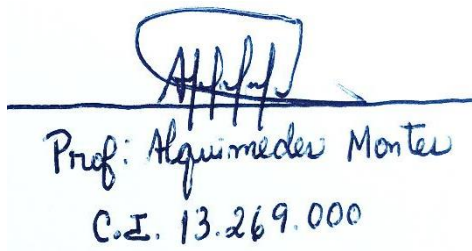 Prof: Alquimedes Montes
C.I. 13.269.000